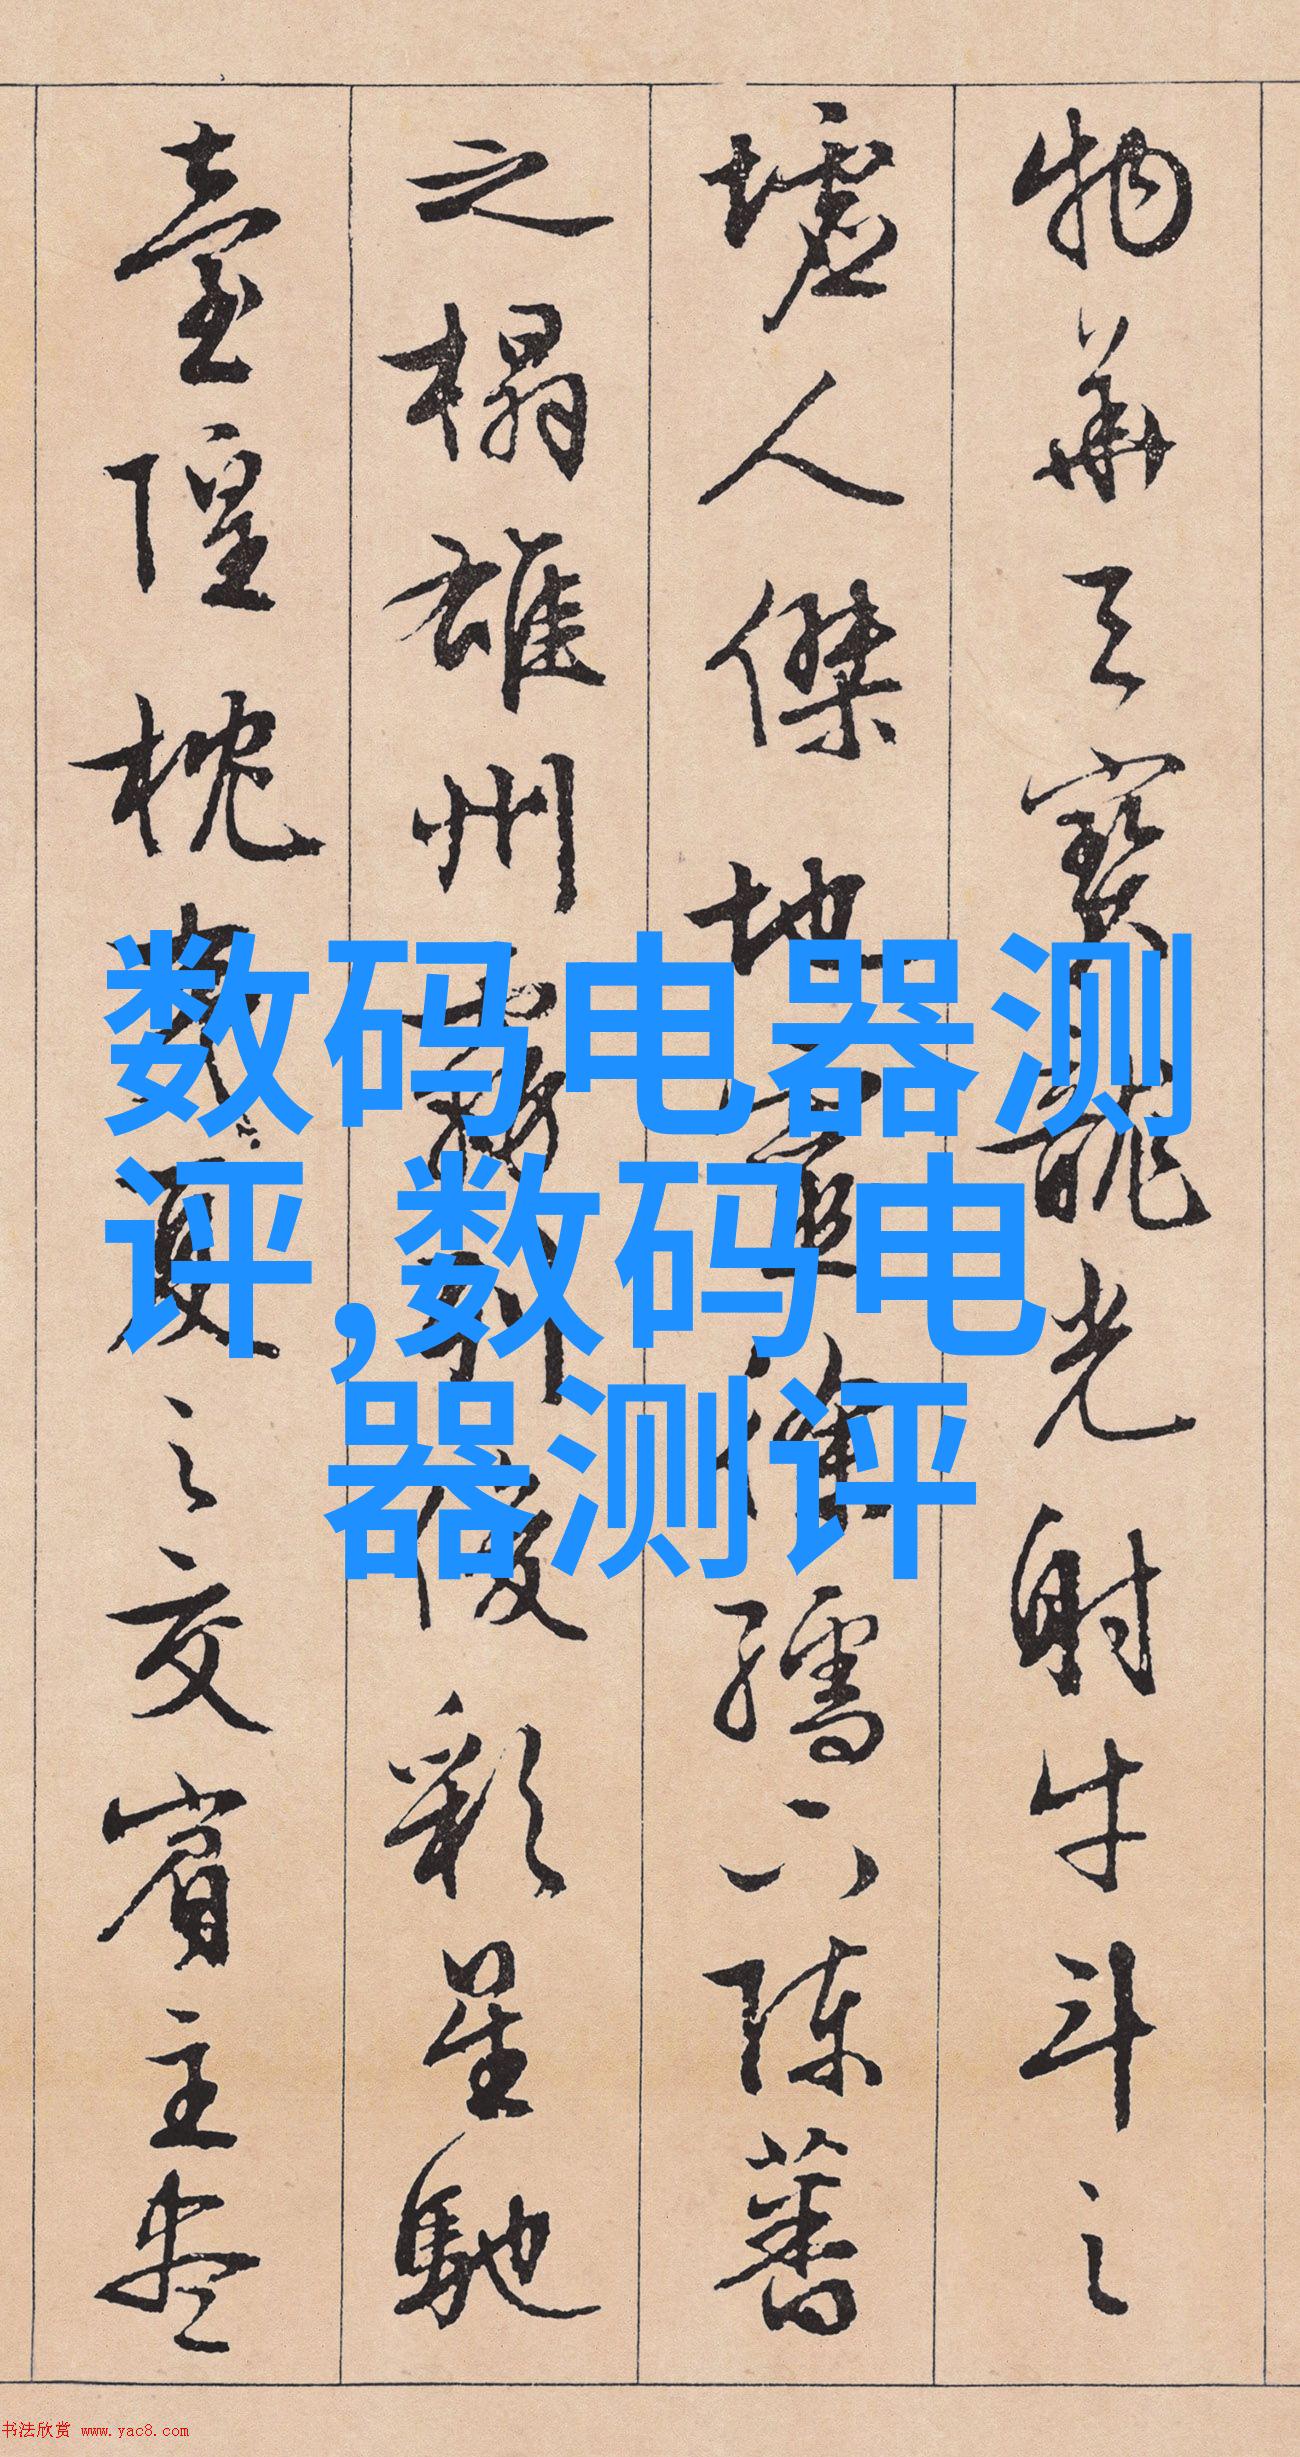 物華天寶龍光射牛斗之
墟人傑地靈徐孺下陳蕃
之榻雄州霧列俊彩星馳
臺隍枕夷夏之交賓主盡
数码电器测
评,数码电
器测评
书法欣赏 www.yac8.com